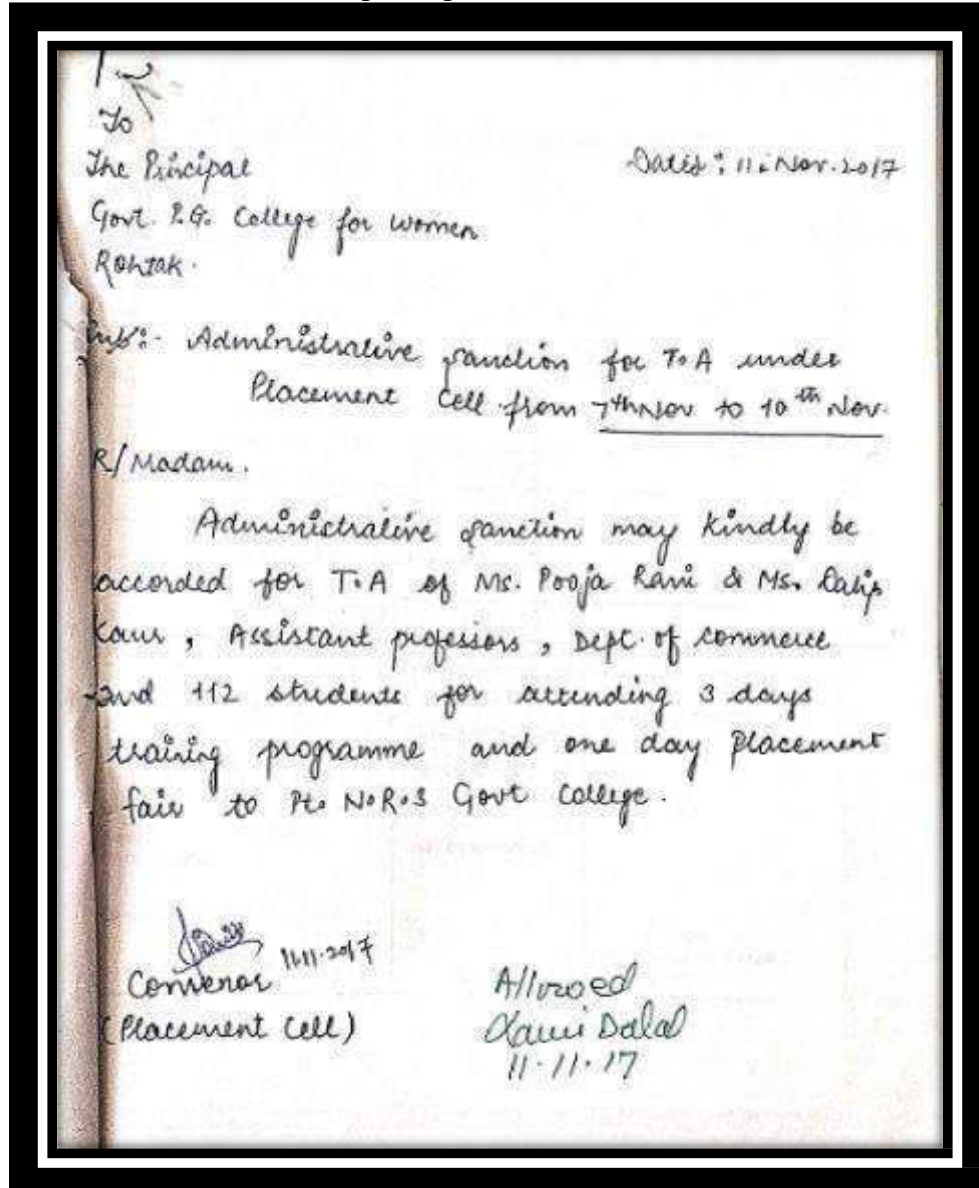 To
The Principal
Dated: 11. Nov. 2017
Govt. P.G. College for women
Rohtak.
Sub:- Administrative sanction for T.A under
Placement Cell from 7th Nov to 10th Nov.
R/Madam.
Administrative sanction may kindly be
accorded for T.A of Ms. Pooja Rani & Ms. Dalip
Kaur, Assistant professors, Dept. of commerce
and 112 students for attending 3 days
training programme and one day Placement
fair to Pt. N.R.S Govt College.
11.11.2017
Convenor
(Placement Cell)
Allowed
Dalal
11.11.17